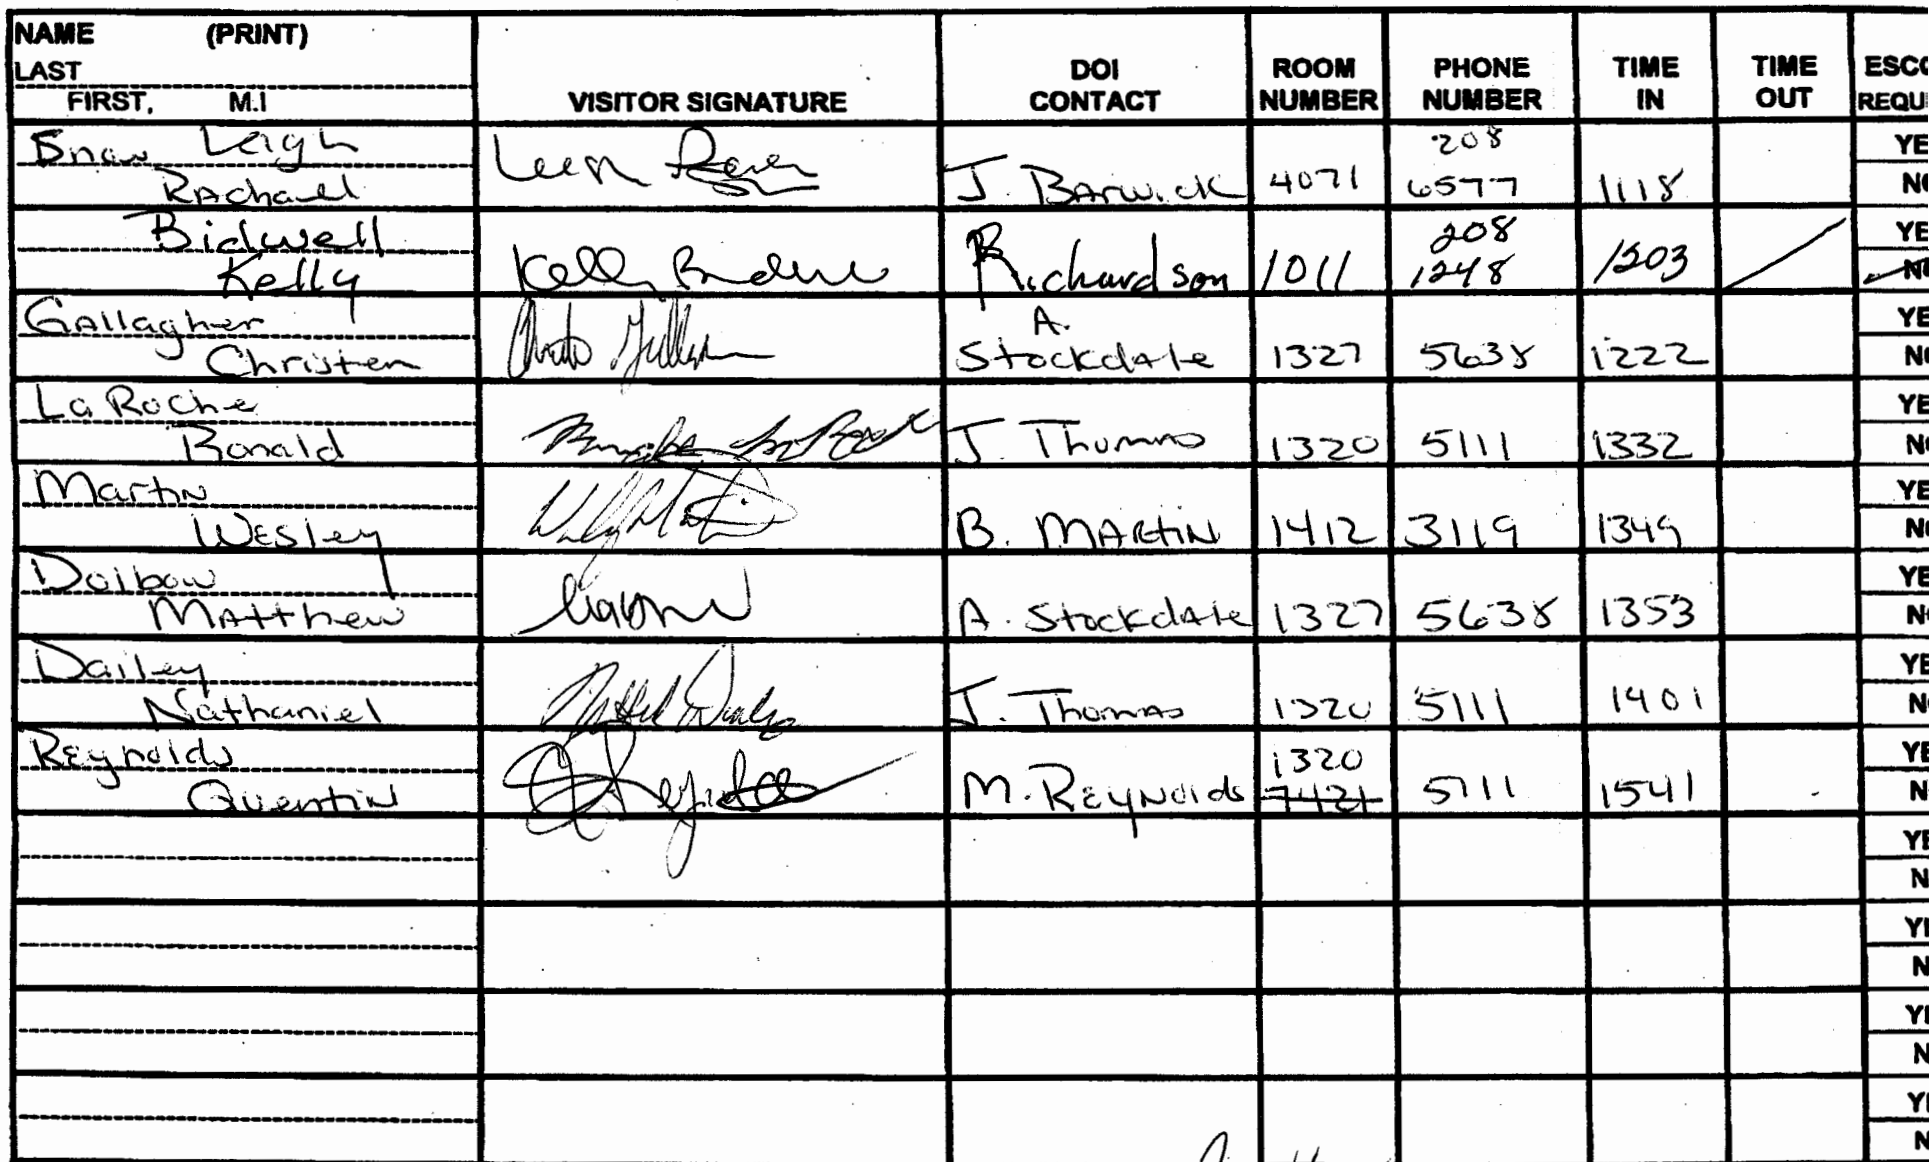 NAME (PRINT)
LAST
FIRST, M.I
VISITOR SIGNATURE
DOI
CONTACT
ROOM
NUMBER
PHONE
NUMBER
TIME
IN
TIME
OUT
ESCO
REQUI
Snow Leigh
Rachael
J. Barwick
4071
208
6577
1118
YE
NO
Bidwell
Kelly
Kelly
Richardson
1011
208
1248
1203
YE
NO
Gallagher
Christen
A.
Stockdale
1327
5638
1222
YE
NO
La Roche
Ronald
J. Thomas
1320
5111
1332
YE
NO
Martin
Wesley
B. MARTIN
1412
3119
1349
YE
NO
Dolbow
Matthew
A. Stockdale
1327
5638
1353
YE
N
Dailey
Nathaniel
J. Thomas
1320
5111
1401
YE
NO
Reynolds
Quentin
M. Reynolds
1320
7421
5111
1541
YE
N
YE
N
YE
N
YE
N
YE
N